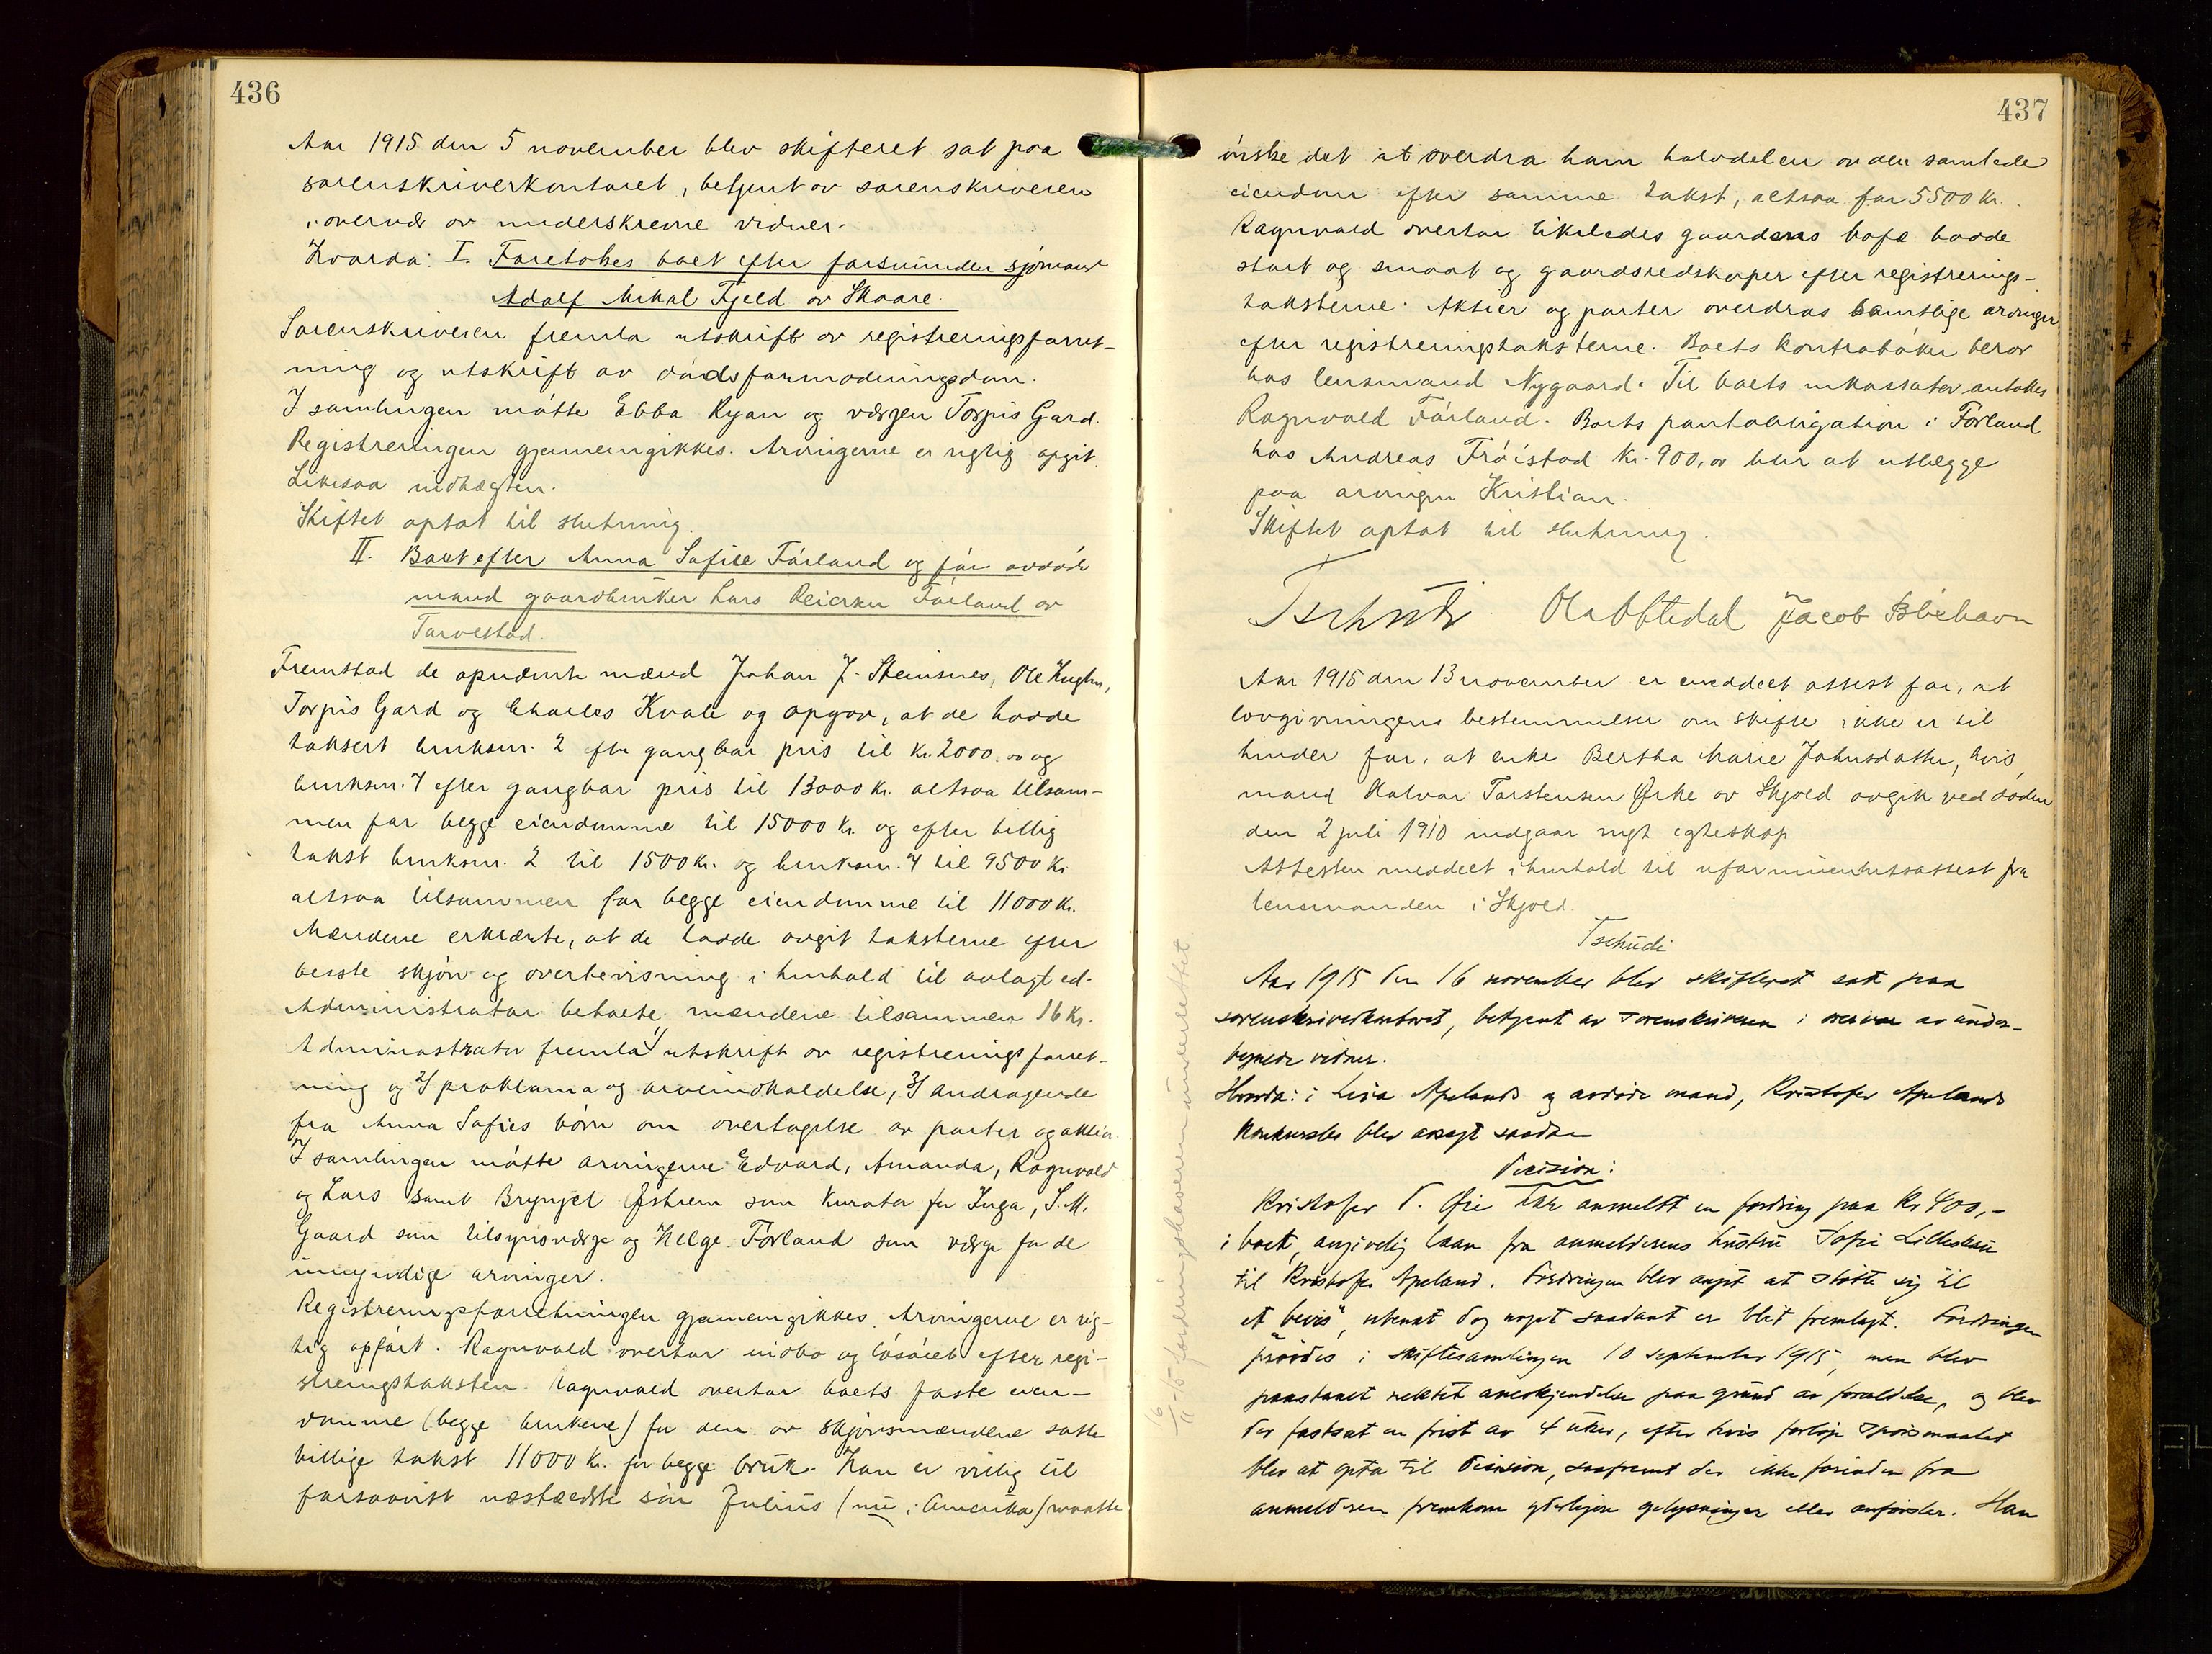 436
Aar 1915 den 5 november blev skifteret sat paa
sorenskriverkontoret, betjent av sorenskriveren
i overvær av underskrevne vidner.
Hvorda: I. Foretokes boet efter forsvunden sjømand
Adolf Mikal Fjeld av Skaare.
Sorenskriveren fremla utskrift av registreringsforret-
ning og utskrift av dødsformodningsdom.
I samlingen møtte Ebba Ryan og værgen Torpis Gard.
Registreringen gjennemgikkes. Arvingerne er rigtig opgit.
Likesaa indtægten.
Skiftet optat til slutning.
II. Boet efter Anna Sofie Førland og før avdøde
mand gaardbruker Lars Reiersen Førland av
Torvestad.
Fremstod de opnævnte mænd Johan J. Steinsnes, Ole Hughn,
Torpis Gard og Charles Kvale og opgav, at de hadde
taksert bruksnr. 2 efter gangbar pris til Kr. 2000.00 og
bruksnr. 4 efter gangbar pris til 13000 Kr. altsaa tilsam-
men for begge eiendomme til 15000 Kr. og efter billig
takst bruksnr. 2 til 1500 Kr. og bruksnr. 4 til 9500 Kr.
altsaa tilsammen for begge eiendomme til 11000 Kr.
Mændene erklærte, at de hadde avgit taksterne efter
beste skjøn og overbevisning i henhold til avlagt ed.
Administrator betalte mændene tilsammen 16 Kr.
Administrator fremla 1/ utskrift av registreringsforret-
ning og 2/ proklama og arveindkaldelse, 3/ andragende
fra Anna Sofies børn om overtagelse av parter og aktier.
I samlingen møtte arvingerne Edvard, Amanda, Ragnvald
og Lars samt Brynjel Østrem som kurator for Inga, S. M.
Gaard som tilsynsværge og Helge Førland som værge for de
umyndige arvinger.
Registreringsforretningen gjennemgikkes. Arvingerne er rig-
tig opført. Ragnvald overtar indbo og løsøret efter regi-
streringstaksten. Ragnvald overtar boets faste eien-
domme (begge brukene) for den av skjønsmændene satte
billige takst 11000 Kr. for begge bruk. Han er villig til
forsaavist næstældste søn Julius (nu i Amerika) maatte
437
ønske det at overdra ham halvdelen av den samlede
eiendom efter samme takst, altsaa for 5500 Kr.
Ragnvald overtar likeledes gaardens bofæ baade
stort og smaat og gaardsredskaper efter registrerings-
taksterne. Aktier og parter overdras samtlige arvinger
efter registreringstaksterne. Boets kontrabøker beror
hos lensmand Nygaard. Til boets inkassator antokes
Ragnvald Førland. Boets pantobligation i Førland
hos Andreas Frøistad Kr. 900,00 blir at utlægge
paa arvingen Kristian.
Skiftet optat til slutning.
Tschudi Ola Oftedal Jacob Bøehavn
Aar 1915 den 13 november er meddelt attest for, at
lovgivningens bestemmelser om skifte ikke er til
hinder for, at enke Bertha Marie Johnsdatter, hvis
mand Halvar Torstensen Ørke av Skjold avgik ved døden
den 2 juli 1910 indgaar nygt egteskap.
Attesten meddelt i henhold til uformuenhetsattest fra
lensmanden i Skjold.
Tschudi
Aar 1915 den 16 november blev skifteret sat paa
sorenskriverkontoret, betjent av sorenskriveren i overvær av under-
tegnede vidner.
Hvorda: i Lisa Apelands og avdøde mand, Kristofer Apelands
konkursbo blev avsagt saadan
Decision:
Kristofer T. Øie har anmeldt en fordring paa Kr. 400,-
i boet, angivelig laan fra anmelderens hustru Sofie Lilleskau
til Kristofer Apeland. Fordringen blev angit at støtte sig til
et "bevis", uten at dog noget saadant er blit fremlagt. Fordringen
prøvdes i skiftesamlingen 10 september 1915, men blev
paastaaet nektet anerkjendelse paa grund av forældelse, og blev
der fastsat en frist av 4 uker, efter hvis forløp spørsmaalet
blev at opta til decision, saafremt der ikke forinden fra
anmelderen fremkom yderligere oplysninger eller anførsler. Han
16/11-15 fordringshaveren underrettet